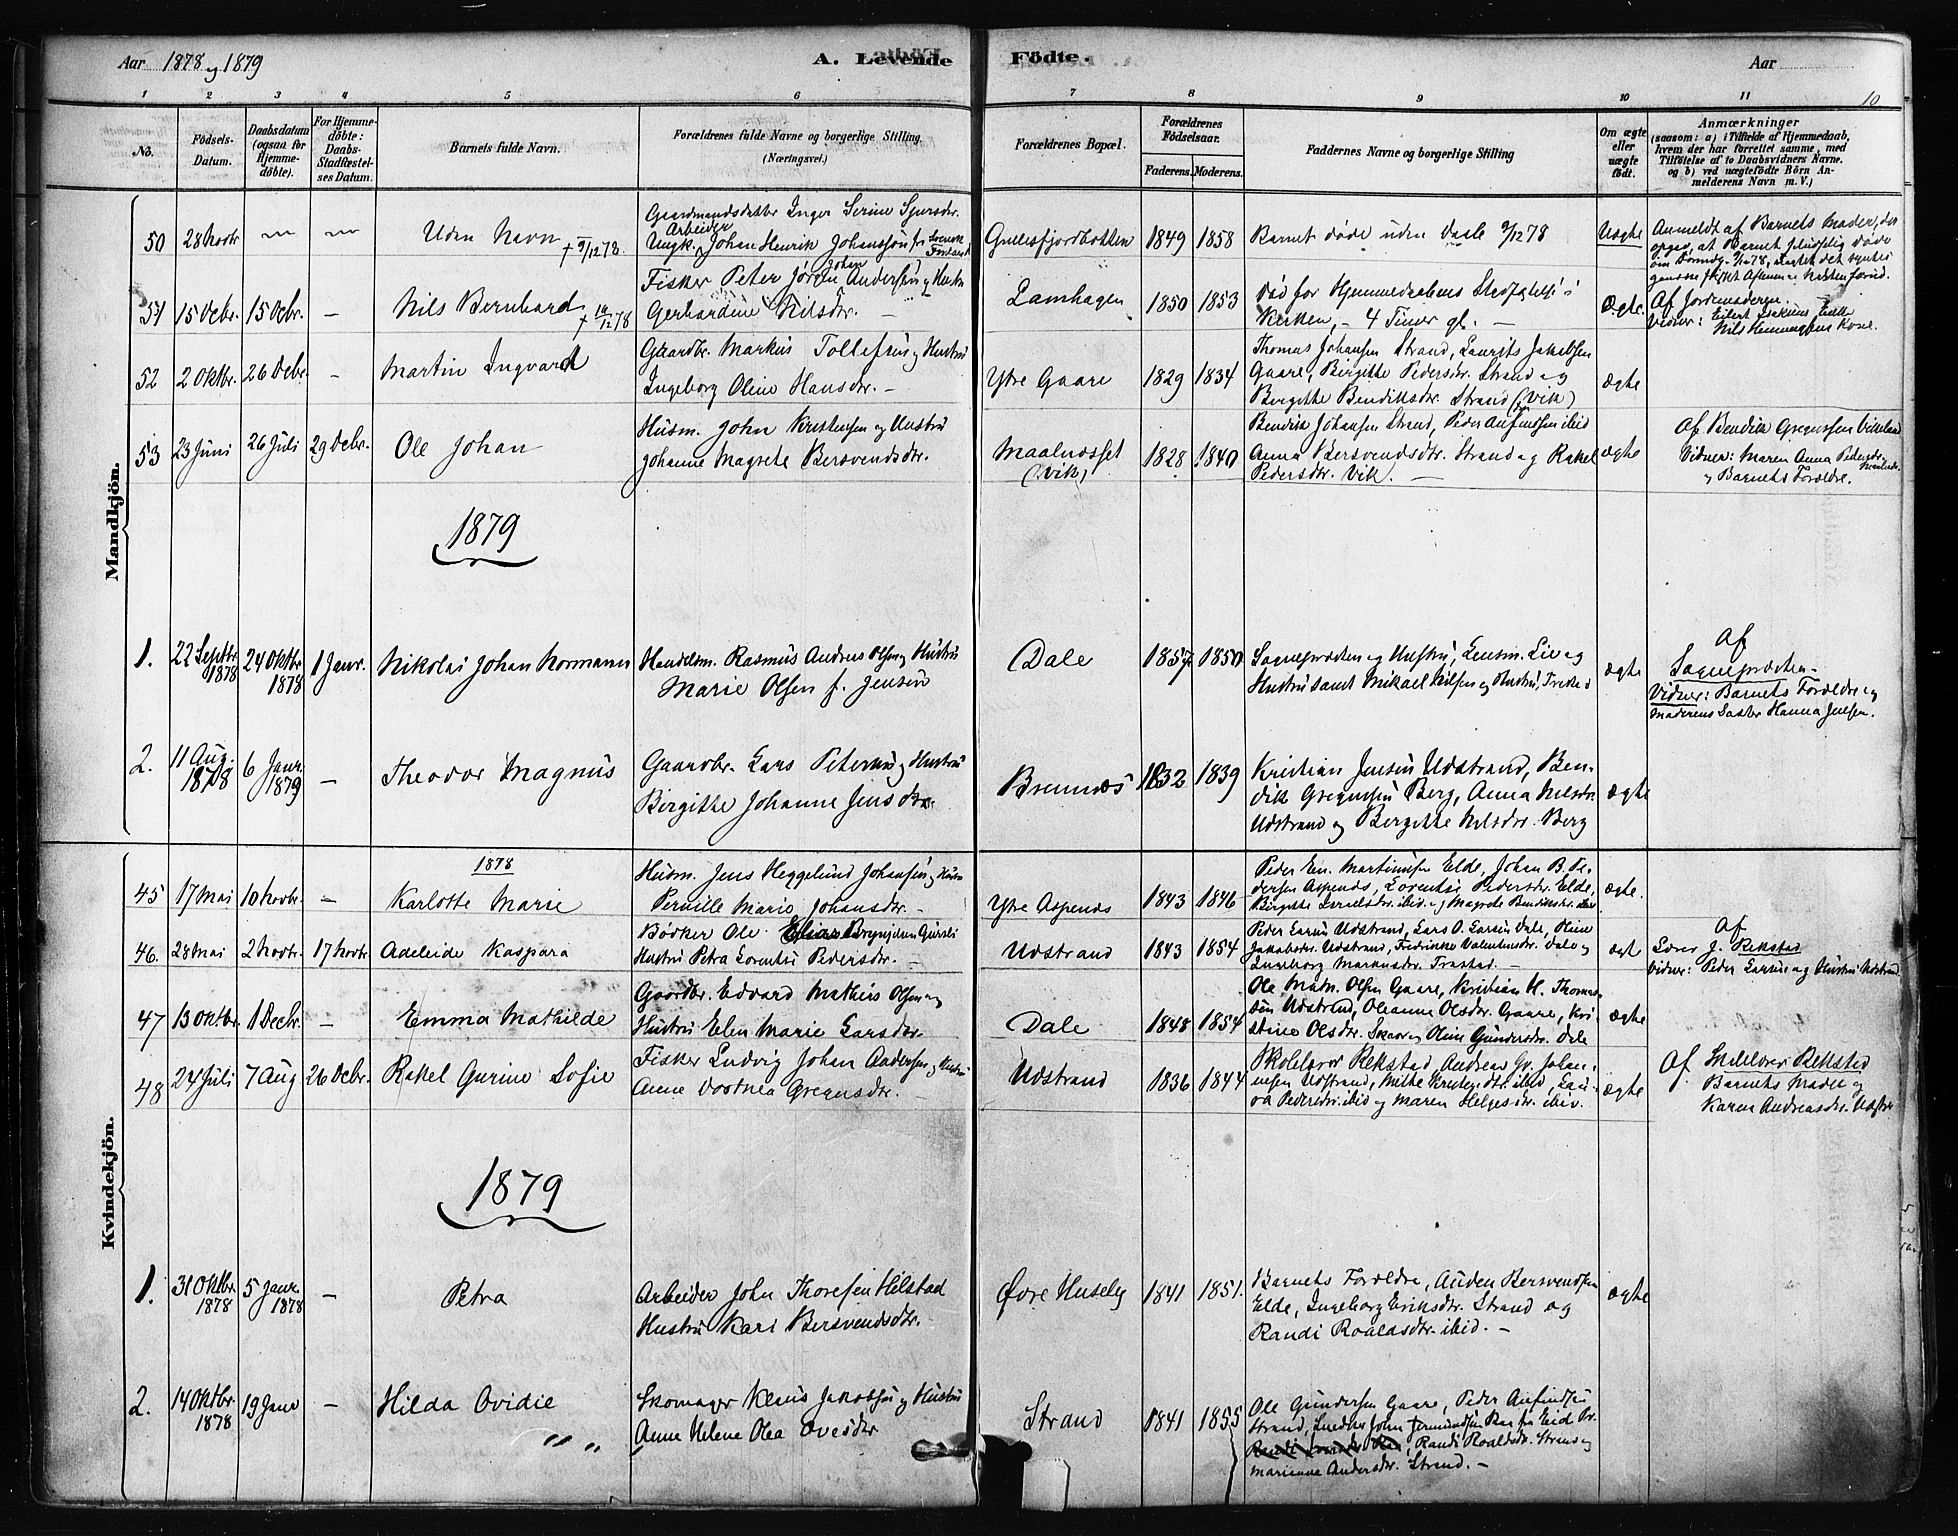 Aar 1878 og 1879
A. Levende Födte.
Aar
10
1 2 3 4 5 6 7 8 9 10 11
No.
Födsels-
Datum.
Daabsdatum
(ogsaa for
Hjemme-
döbte).
For Hjemme-
döbte:
Daabs-
Stadfæstel-
ses Datum.
Barnets fulde Navn.
Forældrenes fulde Navne og borgerlige Stilling.
(Næringsvei.)
Forældrenes Bopæl.
Forældrenes
Födselsaar.
Faderens. Moderens.
Faddernes Navne og borgerlige Stilling
Om ægte
eller
uægte
födt.
Anmærkninger
(saasom: a) i Tilfælde af Hjemmedaab,
hvem der har forrettet samme, med
Tilföielse af to Daabsvidners Navne.
og b) ved uægtefödte Börn An-
melderens Navn m. V.)
Mandkjön.
50 28 Novbr
Uden Navn
+ 9/12 78.
Gaardmandsdatter Inger Serine Sjursdr.
Arbeider
Ungk. Johan Henrik Johanssön fr Svensk
Gullesfjordbotten 1849 1858
Barnet døde uden Daab 9/12 78
Uægte
Anmeldt af Barnets Moder, der
opgav, at Barnet pludselig døde
51 15 Decbr. 15 Decbr. -
Nils Bernhard
+ 18/12 78
Johan
Fisker Peter Jörgen Andersen og Hustru
Gerhardine Nilsdr. -
Lamhagen 1850 1853
Død før Hjemmedaabens Stadfæstelse i
Kirken, - 4 Timer gl. -
Ægte.
Af Jordemoderen.
52 2 Oktbr. 26 Decbr. -
Martin Ingvard
Gaardbr. Markus Tollefsen og Hustru
Ingeborg Oline Hansdr. -
Ytre Gaare 1829 1834
Thomas Johansen Strand, Laurits Jakobsen
Gaare, Birgitte Pedersdr. Strand og
Birgitte Bendiksdr. Strand (Vik)
ægte
53 23 Juni 26 Juli 29 Decbr.
Ole Johan
Husm. John Kristensen og Hustru
Johanne Magrete Bersvendsdr.
Maalnesset
(Vik) 1828 1840
Bendik Johansen Strand, Peder Anfindsen ibid
Anna Bersvendsdtr. Strand og Rakel
Pedersdr. Vik. -
ægte
Af Bendik Gregersen
Vidner: Maren Anna Pedersdr.
og Barnets Forældre.
1879
1. 22 Septbr 1878 24 Oktbr 1878 1 Janr.
Nikolai Johan Normann
Handelsm. Rasmus Andreas Olsen og Hustru
Marie Olsen f. Jensen
Dale 1857 1850
Sognepræsten og Hustru, Lensm. Lie og
Hustru samt Mikael Nilsen og Hustru,
ægte
Af
Sognepræsten.
Vidner: Barnets Forældre og
Moderens Søster Hanna Jensen.
2. 11 Aug. 1878 6 Janr. 1879 -
Theodor Magnus
Gaardbr. Lars Petersen og Hustru
Birgitte Johanne Jensdtr.
Bremnæs 1832 1839
Kristian Jensen Udstrand, Ben-
dik Gregersen Berg, Anna Nilsdr.
Udstrand og Birgitte Nilsdr. Berg
ægte
Kvindekjön.
1878
45 17 Mai 10 Novbr. -
Karlotte Marie
Husm. Jens Heggelund Johansen og Hustru
Pernille Marie Johansdr. -
Ytre Aspenes 1843 1846
Peder En. Martinusen Elde, Johan B. Pe-
dersen Aspenes, Lorentse Pedersdr. Elde,
Birgitte Israelsdr. ibid. og Magrete Bendiksdr.
ægte.
46. 28 Mai 2 Novbr. 17 Novbr
Adelaide Kaspara
Bødker Ole Brynjelsen
Hustru Petra Lorentse Pedersdr. -
Udstrand 1843 1854
Peder Larsen Udstrand, Lars O. Larsen Dale,
Jakobsdr. Udstrand, Fredrikke Valentinsdr. Dale og
Ingeborg Markusdr. Trastad. -
ægt
Af
Lærer J. Rekstad
Vidner: Peder Larsen og Hustru Udstrand.
47 13 Oktbr. 1 Decbr. -
Emma Mathilde
Gaardbr. Edvard Mathias Olsen og
Hustru Elen Marie Larsdtr.
Dale 1848 1854
Ole Mats. Olsen Gaare, Kristian H. Thomas-
sen Udstrand, Oleanne Olsdr. Gaare, Kri-
stine Olsdr. Skaar og Oline Gundersdr. Dale
ægte
48 24 Juli 7 Aug 26 Decbr.
Rakel Gurine Sofie
Fisker Ludvig Johan Andersen og Hustru
Anne Dorthea Gregersdr. -
Udstrand 1836 1844
Skolelærer Rekstad, Andreas Gr. Johan-
nesen Udstrand, ibid, Lau-
ra Pedersdr. ibid og Maren Helgesdr. ibid.
ægte
Af Skolelærer Rekstad
Barnets Moder og
Karen Andreasdr. Udstr.
1879
1. 31 Oktbr. 1878 5 Janr. 1878 -
Petra
Arbeider John Thoresen Hilstad
Hustru Kari Bersvendsdtr.
Øvre Huseby 1841 1851.
Barnets Forældre, Auden Bersvendsen
Elde, Ingeborg Eriksdtr. Strand og
Randi Roaldsdtr. ibid. -
ægte
2. 14 Oktbr 1878 19 Janr -
Hilda Ovidie
Skomager Klaus Jakobsen og Hustru
Anne Helene Olea Ovesdtr
Strand 1841 1855
Ole Gundersen Gaare, Peder Anfindsen
Strand, Snedker John
Randi Roaldsdr. Strand og
Marianne Andersdtr. Strand. -